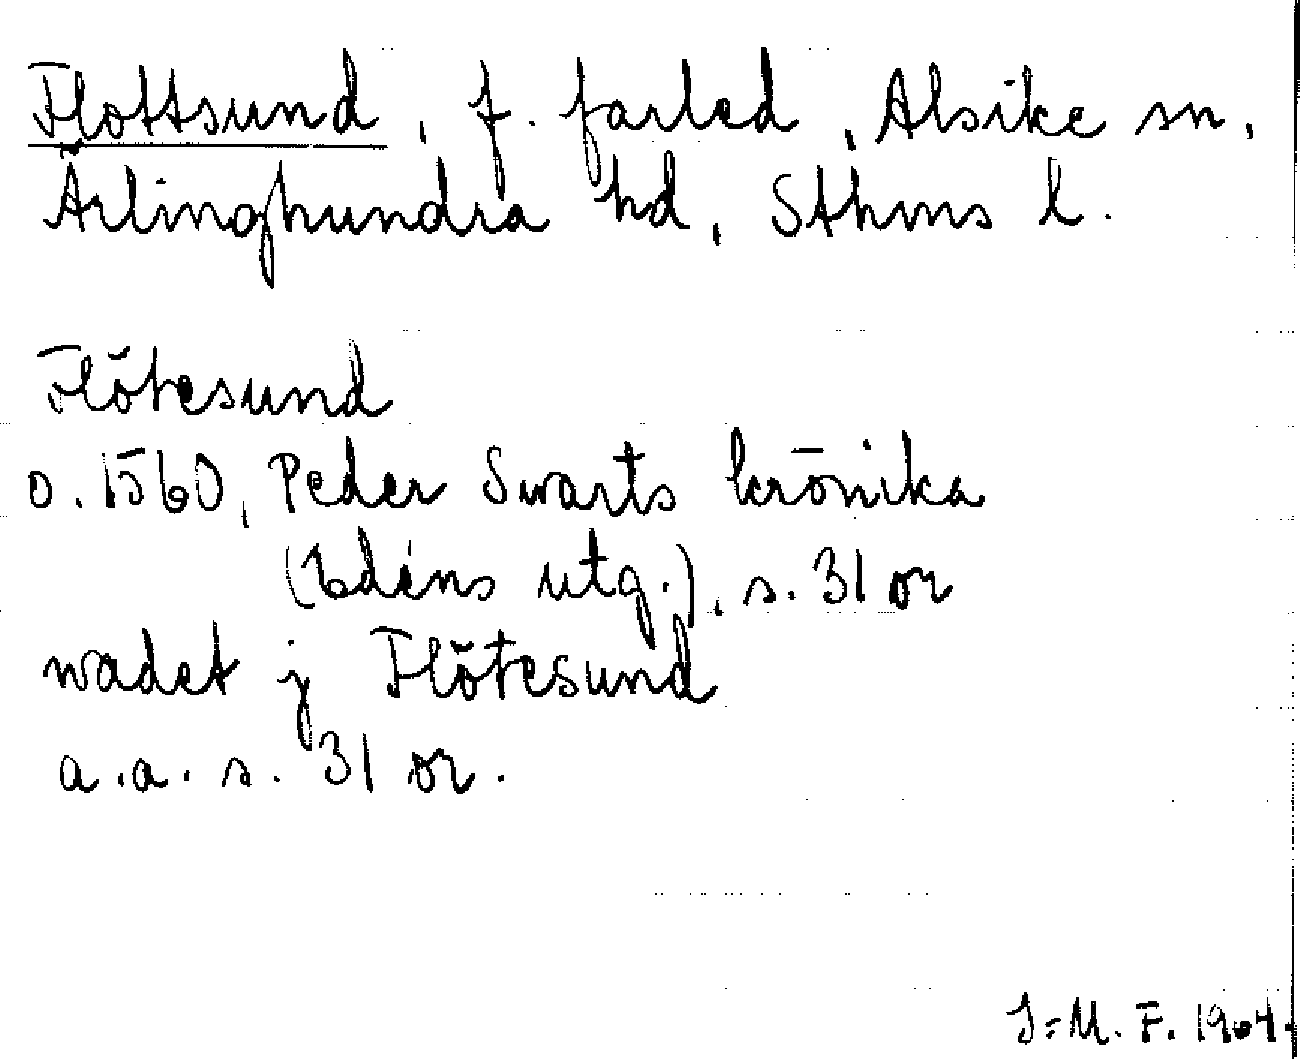 Flottsund, f. farled, Alsike sn,
Ärlinghundra hd, Sthms l.
Flötesund
o. 1560, Peder Swarts krönika
(Edéns utg.), s. 31 or
wadet j Flötesund
a.a. s. 31 or.
I-M. F. 1964.